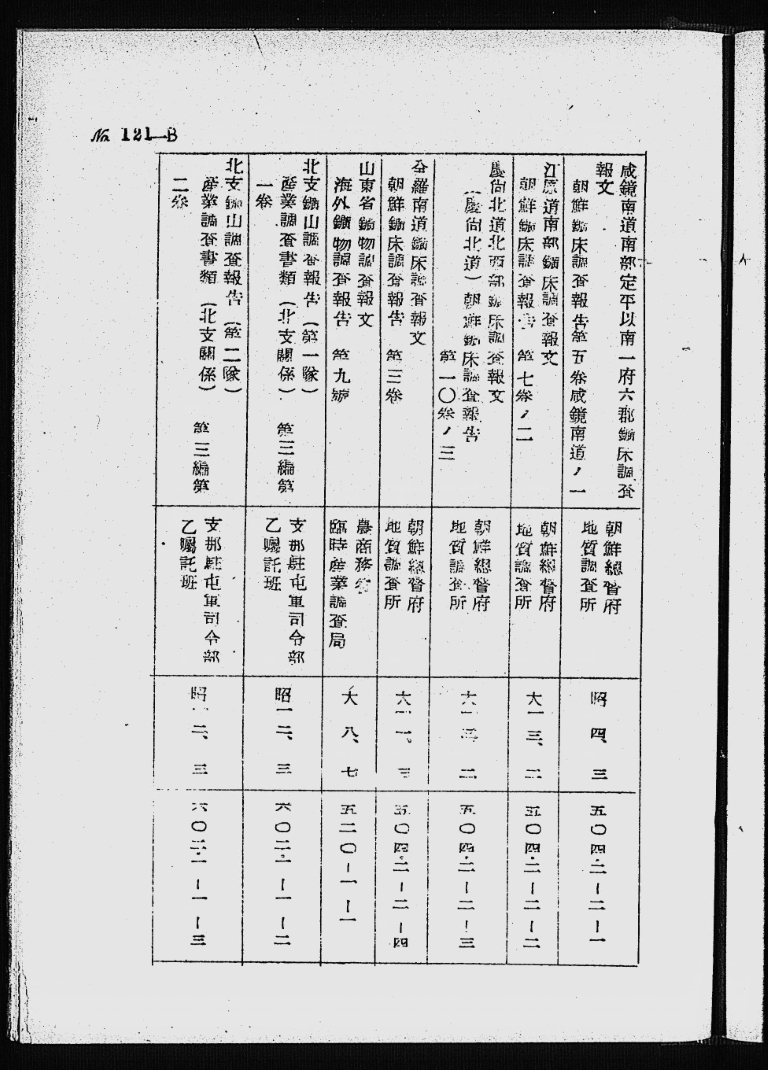 No 121-B
咸鏡南道南部定平以南一府六郡鑛床調査
報文
朝鮮鑛床調査報告第五卷咸鏡南道ノ一
朝鮮總督府
地質調査所
昭 四、三
五〇四・二ー二ー一
江原道南部鑛床調査報文
朝鮮鑛床調査報告 第七卷ノ二
朝鮮總督府
地質調査所
大一三、二
五〇四・二ー二ー二
慶尙北道北西部鑛床調査報文
(慶尙北道)朝鮮鑛床調査報告
第一〇卷ノ三
朝鮮總督府
地質調査所
二
五〇四・二ー二ー三
全羅南道鑛床調査報文
朝鮮鑛床調査報告 第三卷
朝鮮總督府
地質調査所
五〇四・二ー二ー四
山東省鑛物調査報文
海外鑛物調査報告 第九號
農商務省
臨時産業調査局
大 八、七
五二〇ー一ー一
北支鑛山調査報告(第一隊)
産業調査書類(北支關係) 第三編第
一卷
支那駐屯軍司令部
乙囑託班
昭一二、三
六〇二・二ー一ー二
北支鑛山調査報告(第二隊)
産業調査書類(北支關係) 第三編第
二卷
支那駐屯軍司令部
乙囑託班
昭一二、三
六〇二・二ー一ー三